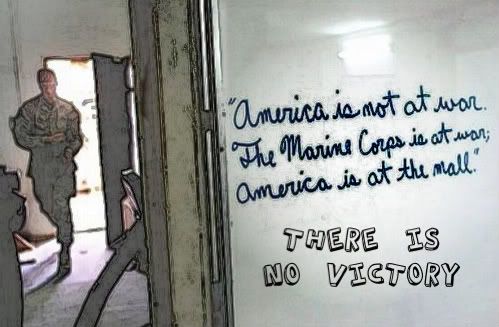 "America is not at war.
The Marine Corps is at war;
America is at the mall."
THERE IS
NO VICTORY